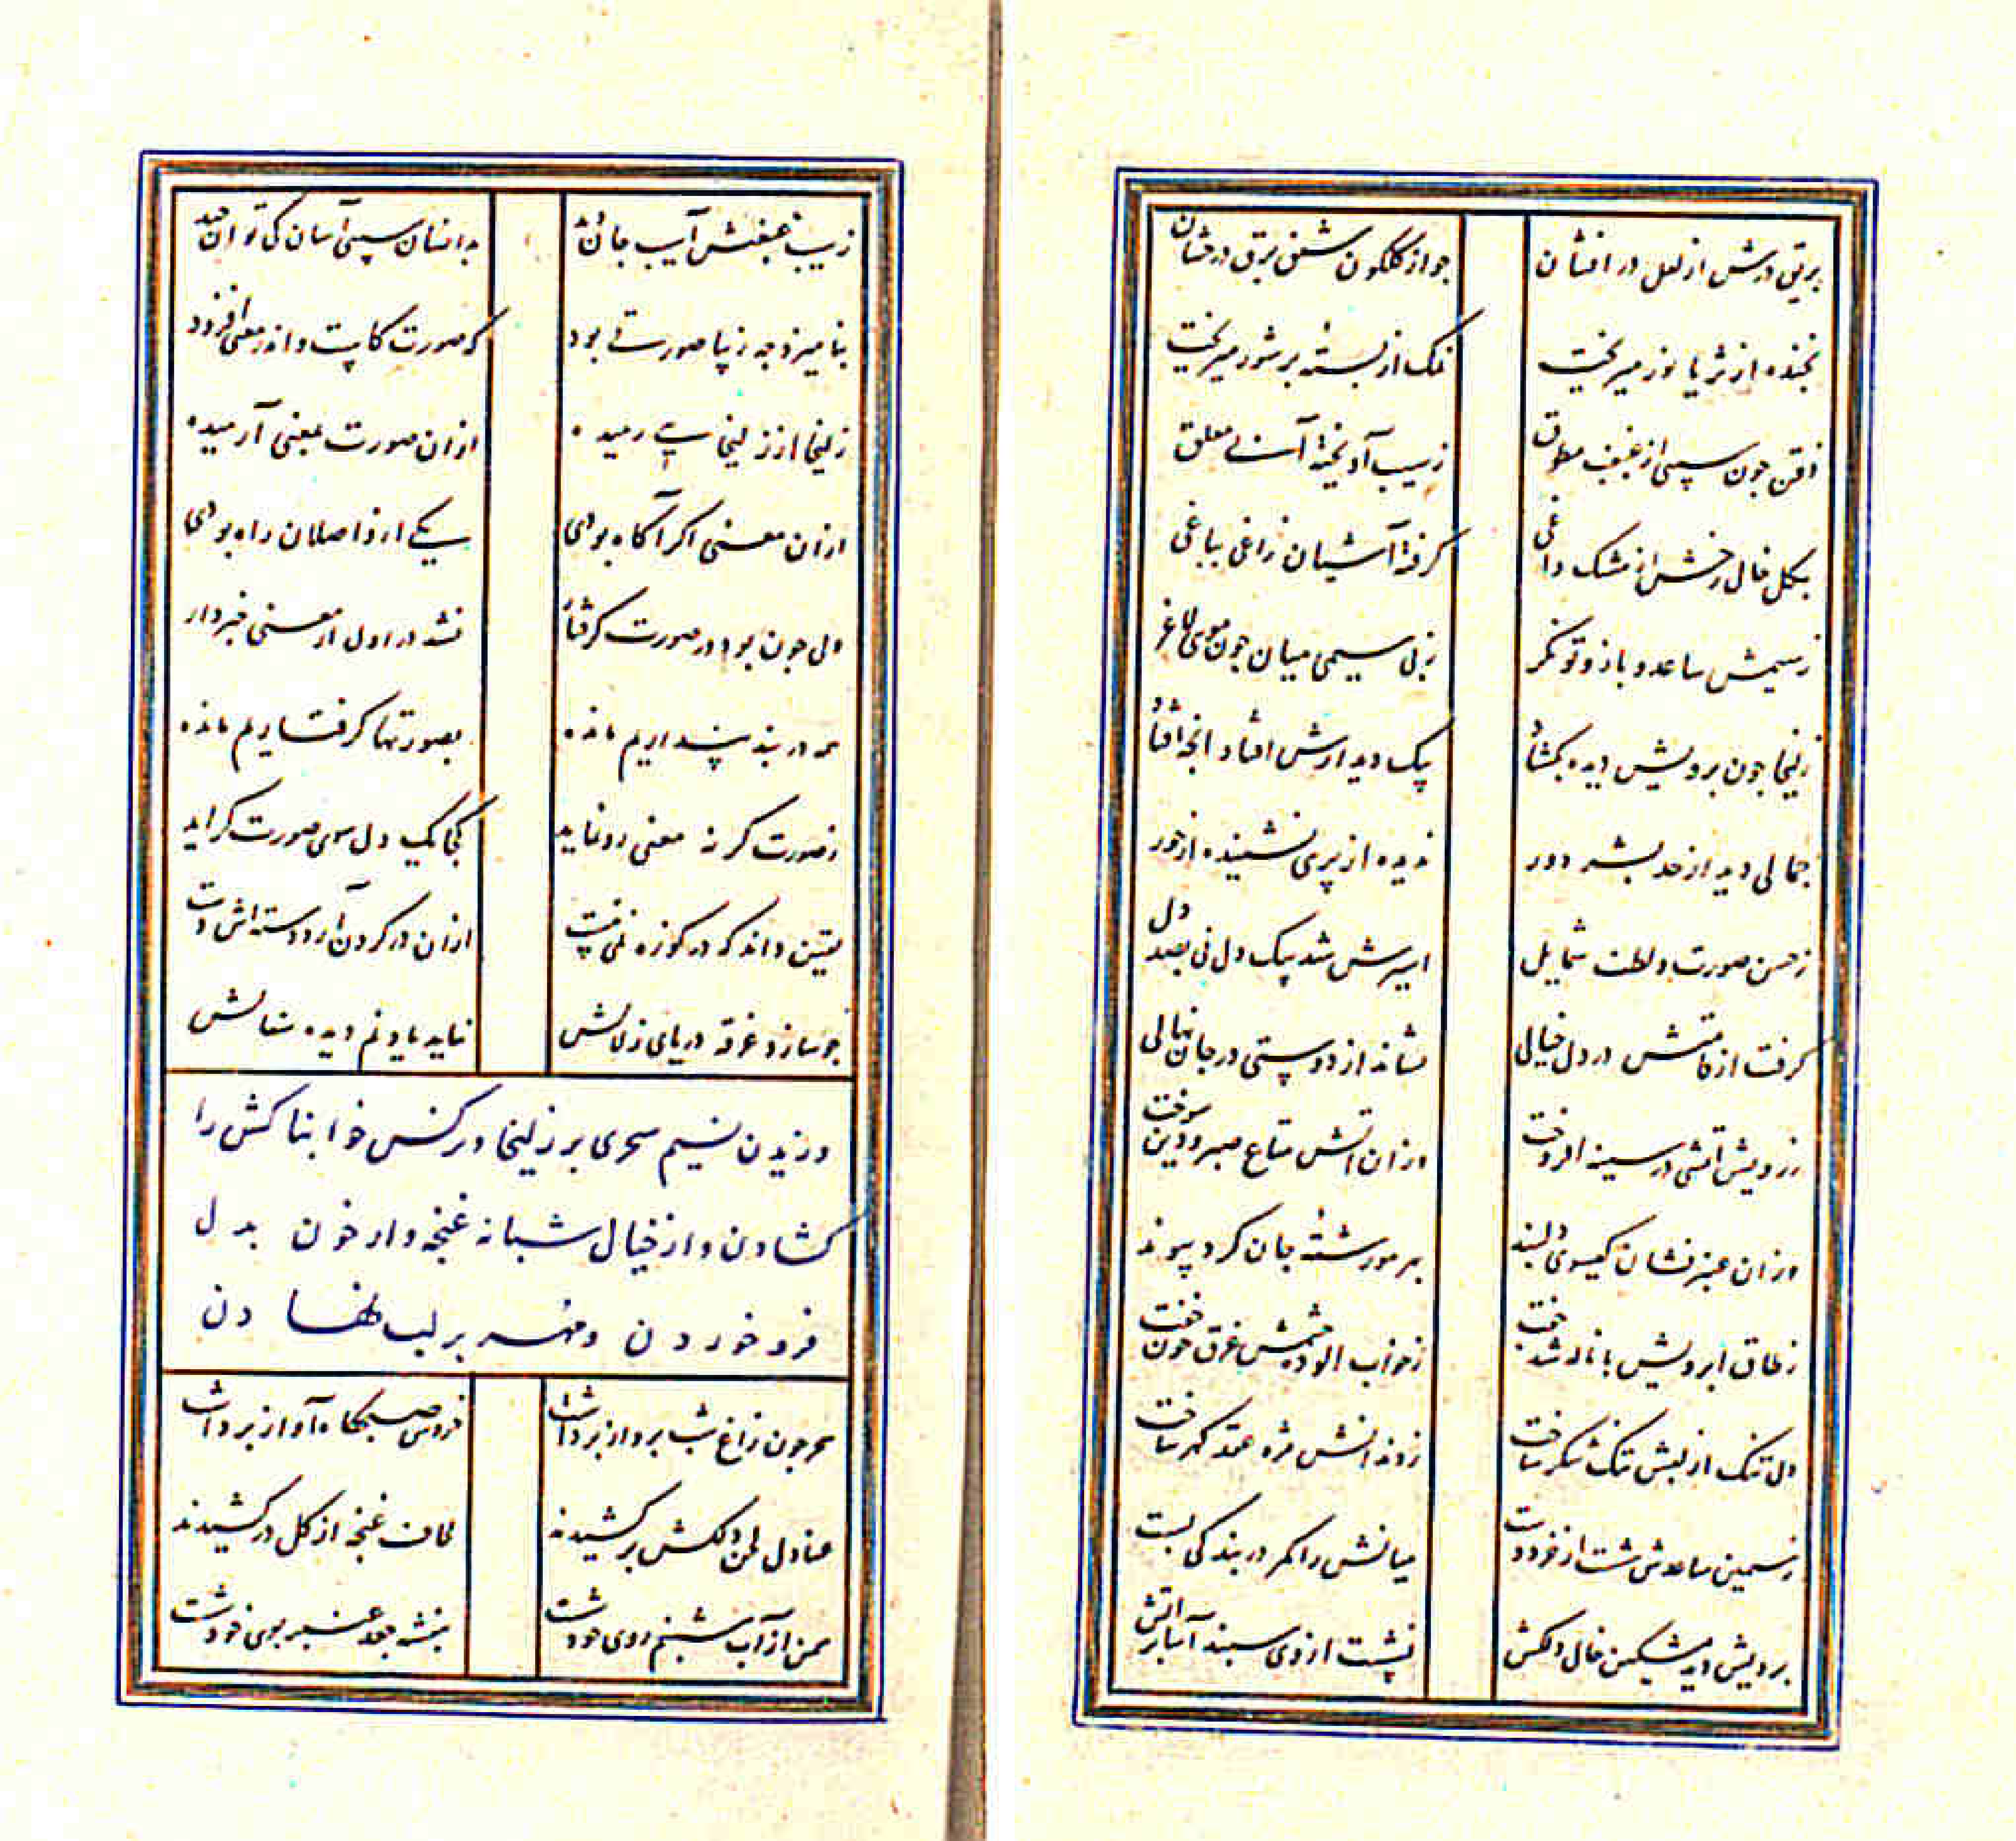 بریقی درش از لعل در افشان
جو از کلکون شفق برق درخشان
بخنده از ثریا نور میریخت
نمک از بسته بر شور میریخت
ذقن جون سیبی از غبغب مطوق
زسیب آویخته آبی معلق
بکل خال رخش از مشک داغی
کرفته آشیان زاغی بباغی
زسیمش ساعد و بازو توانکر
زبی سیمی میان جون موی لاغر
زلیخا جون برویش دیده بکشاد
بیک دیدارش افتاد انجه افتاد
جمالی دید از حد بشر دور
ندیده از پری نشنیده از حور
زحسن صورت و لطف شمایل
اسیرش شد بیک دل نی بصد دل
کرفت از قامتش در دل خیالی
نشاند از دوستی در جان نهالی
ز رویش آتشی در سینه افروخت
وزان اتش متاع صبر و دین سوخت
وزان عنبرفشان کیسوی دلبند
بهر مو رشته جان کرد پیوند
زطاق ابرویش با ناله شد جفت
زخواب الوده چشمش غرق خون خفت
دل تنک از لبش تنک شکر ساخت
زدندانش مژه عقد کهر ساخت
زسیمین ساعدش شست از خرد دست
میانش را کمر در بندکی بست
برویش دید مشکین خال دلکش
نشست از وی سپند آسا بر اتش
زسیب غبغبش آسیب جان دید
بدانسان سیبی آسان کی توان چید
بنامیزد جه زیبا صورتی بود
که صورت کاست و اندر معنی افزود
زلیخا از زلیخایی رمیده
ازان صورت بمعنی آرمیده
ازان معنی اکر آکاه بودی
یکی از واصلان راه بودی
ولی جون بود در صورت کرفتار
نشد در اول از معنی خبردار
همه در بند پنداریم مانده
بصورتها کرفتاریم مانده
زصورت کر نه معنی رو نماید
کجا یک دل سوی صورت کراید
یقین داند که در کوزه نمی هست
ازان در کردن آرد دسته اش دست
جو سازد غرقه دریای زلالش
نیاید یاد نم دیده سفالش
وزیدن نسیم سحری بر زلیخا و نرکس خوابناکش را
کشادن و از خیال شبانه غنجه وار خون بدل
فرو خوردن و مهر بر لب نهادن
سحر جون زاغ شب برواز برداشت
خروس صبحکاه آواز برداشت
عنادل لحن دلکش برکشیدند
لحاف غنجه از کل درکشیدند
سمن از آب شبنم روی خود شست
بنفشه جعد عنبر بوی خود شست